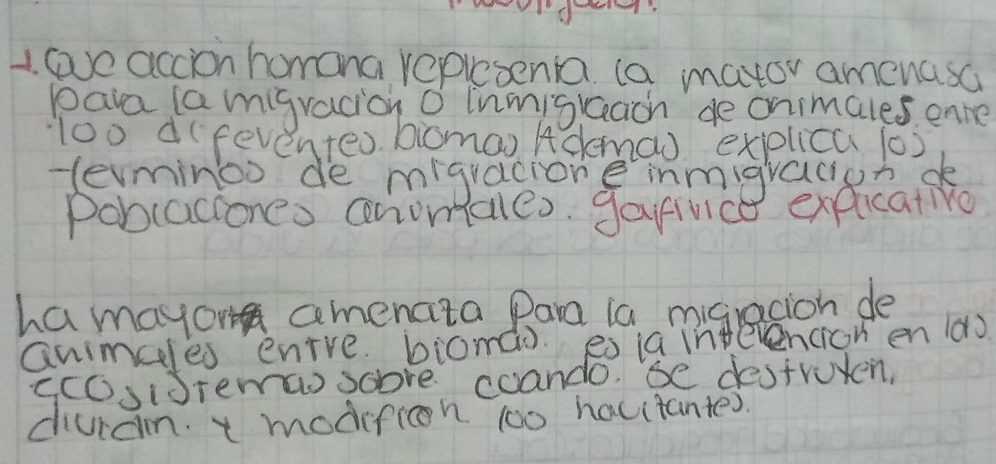 1. Que acción homana representa. la mayor amenasa
para la migración o inmigración de animales entre
los diferentes. biomas Ademas explica los
terminos de migración e inmigración de
poblaciones animales. gafivico explicativo
La mayor amenaza para la migración de
animales entre. biomas. es la intervención en los
ecosistemas sobre cuando. se destruyen,
dividin. y modifican los havitantes.